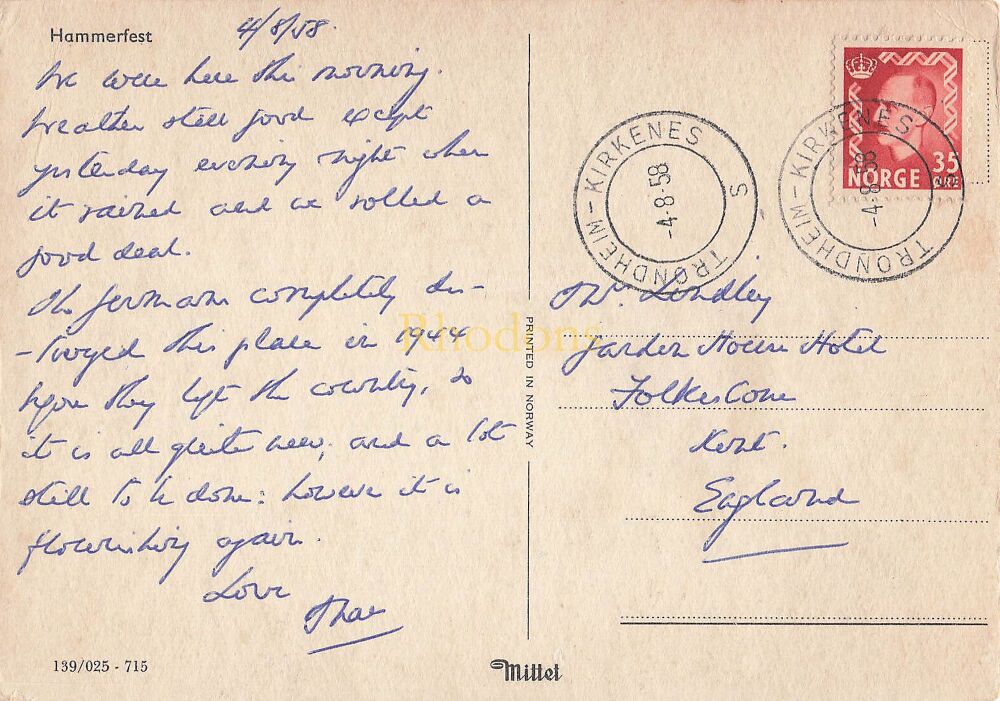 Hammerfest
4/8/58.
We were here this morning.
Weather still good except
yesterday evening night when
it rained and we rolled a
good deal.
The Germans completely des-
-troyed this place in 1944
before they left the country, so
it is all quite new, and a lot
still to be done: however it is
flourishing again.
Love
PRINTED IN NORWAY
139/025 - 715
Mittet
Rhodons
TRONDHEIM - KIRKENES
S
-4.8.58
TRONDHEIM - KIRKENES
-4.8.58
NORGE
35
ØRE
Lindley
Garden House Hotel
Folkestone
Kent.
England